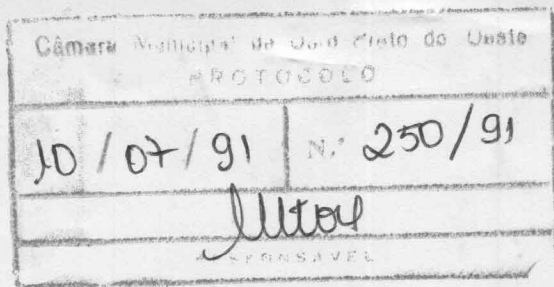 Câmara Municipal de Ouro Preto do Oeste
PROTOCOLO
10 / 07 / 91 N.º 250/91
RESPONSAVEL